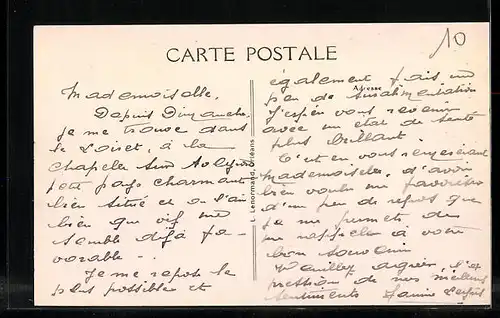 CARTE POSTALE
10
Mademoiselle,
Depuis Dimanche
je me trouve dans
le Loiret, à la
Chapelle sur Aveyron
petit pays charmant
bien situé et où l'air
bien que vif me
semble déjà fa-
vorable -.
Je me repose le
plus possible et
L. Lenormand, Orléans
Adresse
également fais un
peu de suralimentation
J'espère vous revenir
avec un état de santé
plus brillant
C'est en vous remerciant
Mademoiselle, d'avoir
bien voulu me favoriser
d'un peu de repos que
je me permets de
me rappeler à votre
bon souvenir
Veuillez agréer, l'ex
pression de mes meilleurs
sentiments